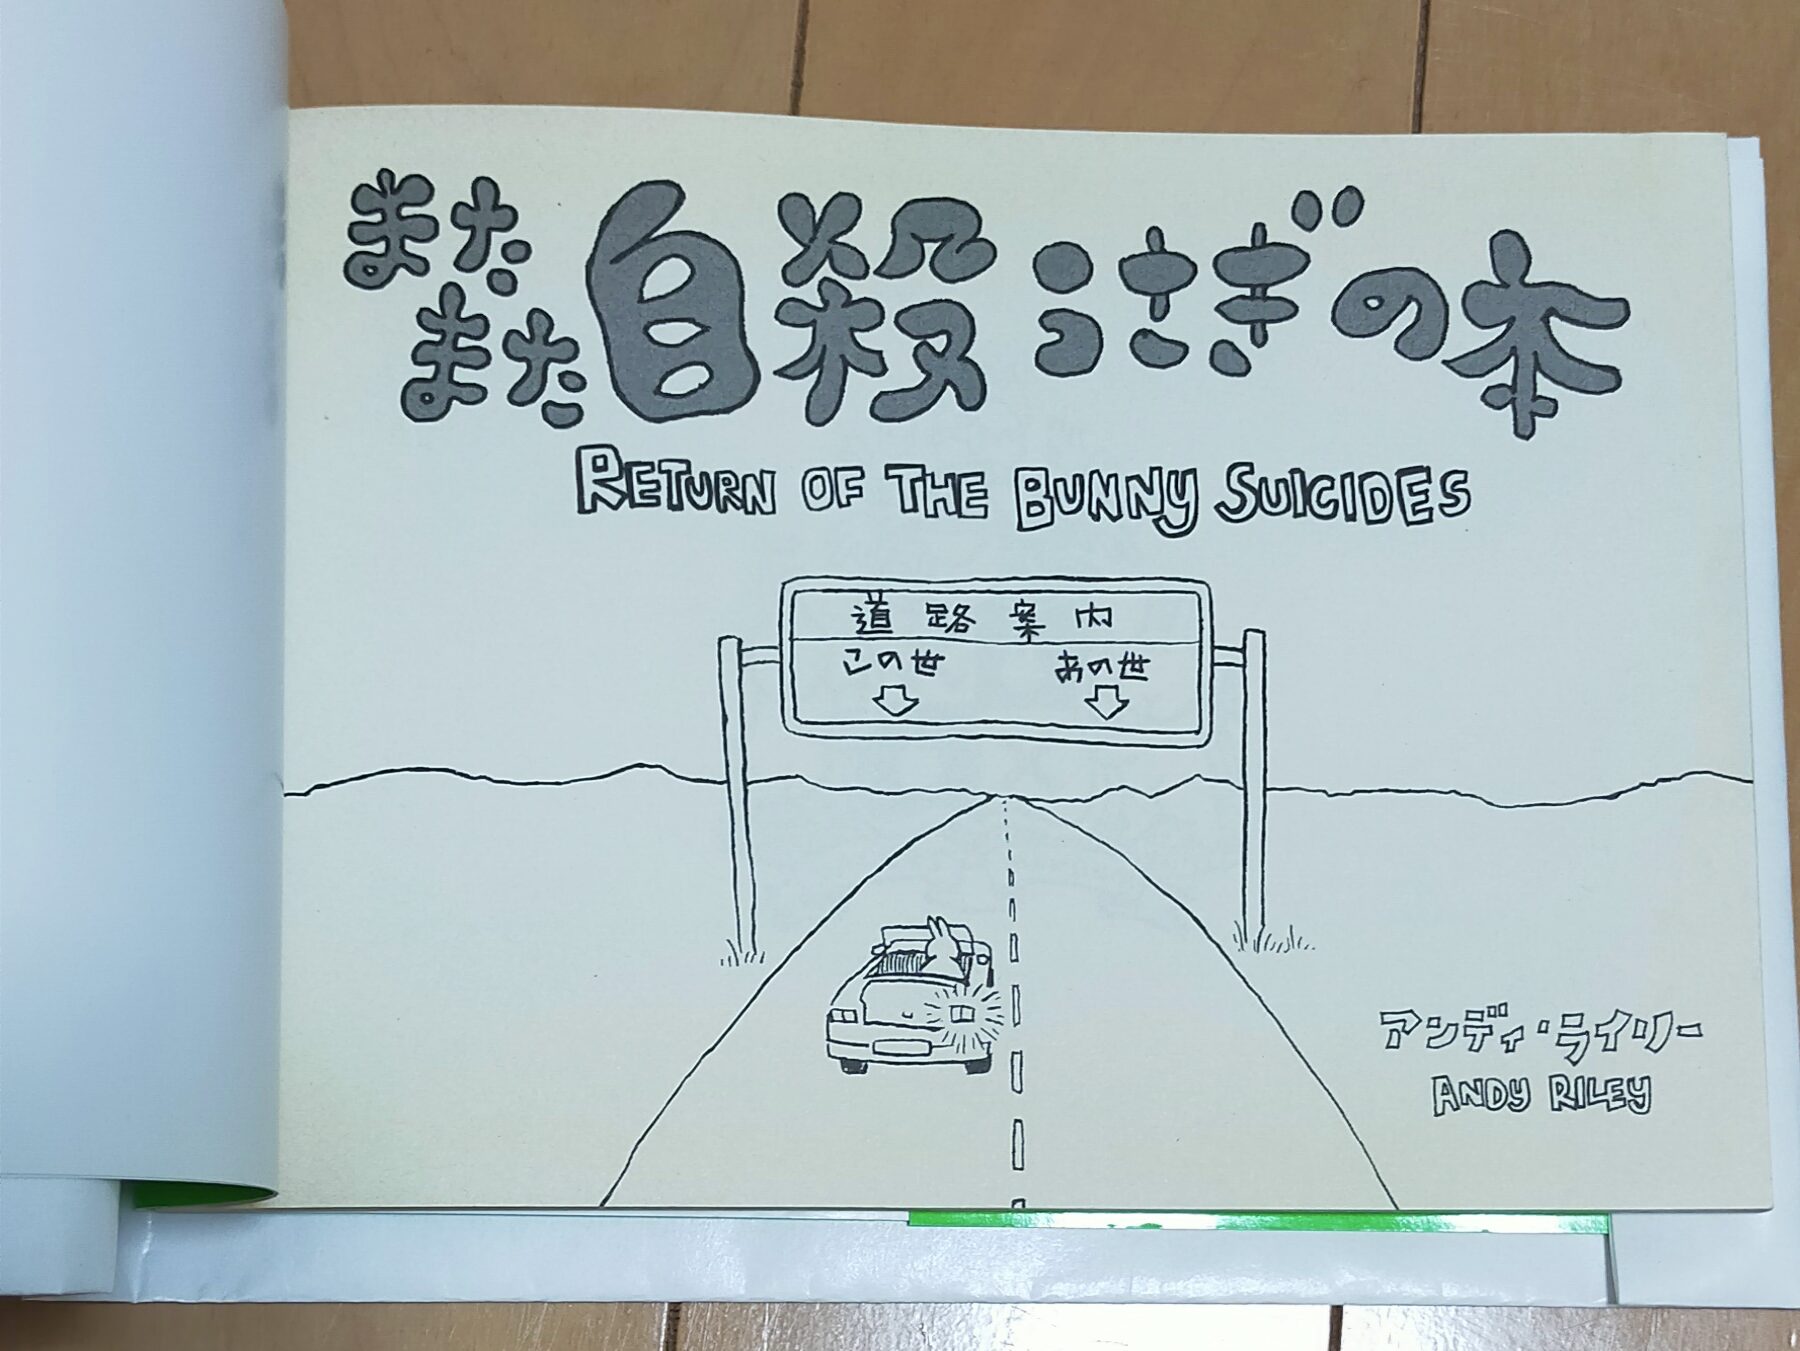 またまた自殺うさぎの本
RETURN OF THE BUNNY SUICIDES
道路案内
この世 あの世
アンディ・ライリー
ANDY RILEY